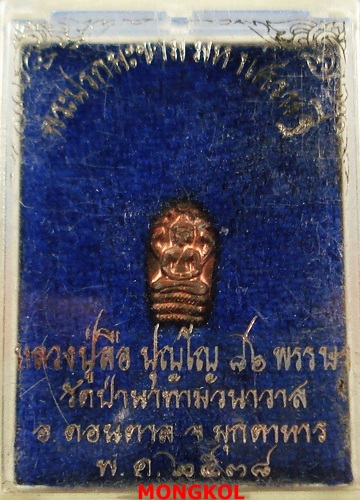 พระปรกมะขามมหาเศรษฐี
หลวงปู่ลือ ปุญโญ ๘๖ พรรษา
วัดป่านาทามวนาวาส
อ.ดอนตาล จ.มุกดาหาร
พ.ศ.๒๕๓๘
MONGKOL